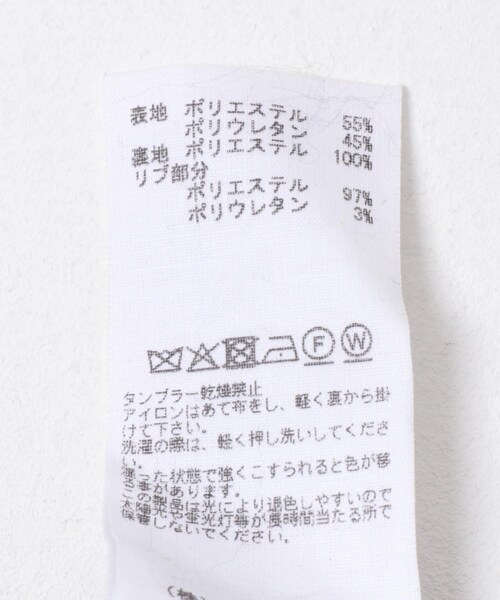 表地 ポリエステル 55%
ポリウレタン 45%
裏地 ポリエステル 100%
リブ部分
ポリエステル 97%
ポリウレタン 3%
F W
タンブラー乾燥禁止
アイロンはあて布をし、軽く裏から掛
けて下さい。
洗濯の際は、軽く押し洗いしてくださ
い。
湿った状態で強くこすられると色が移
る事があります。
この製品は光により退色しやすいので
太陽光や蛍光灯等が長時間当たる所で
保管しないでください。
(株